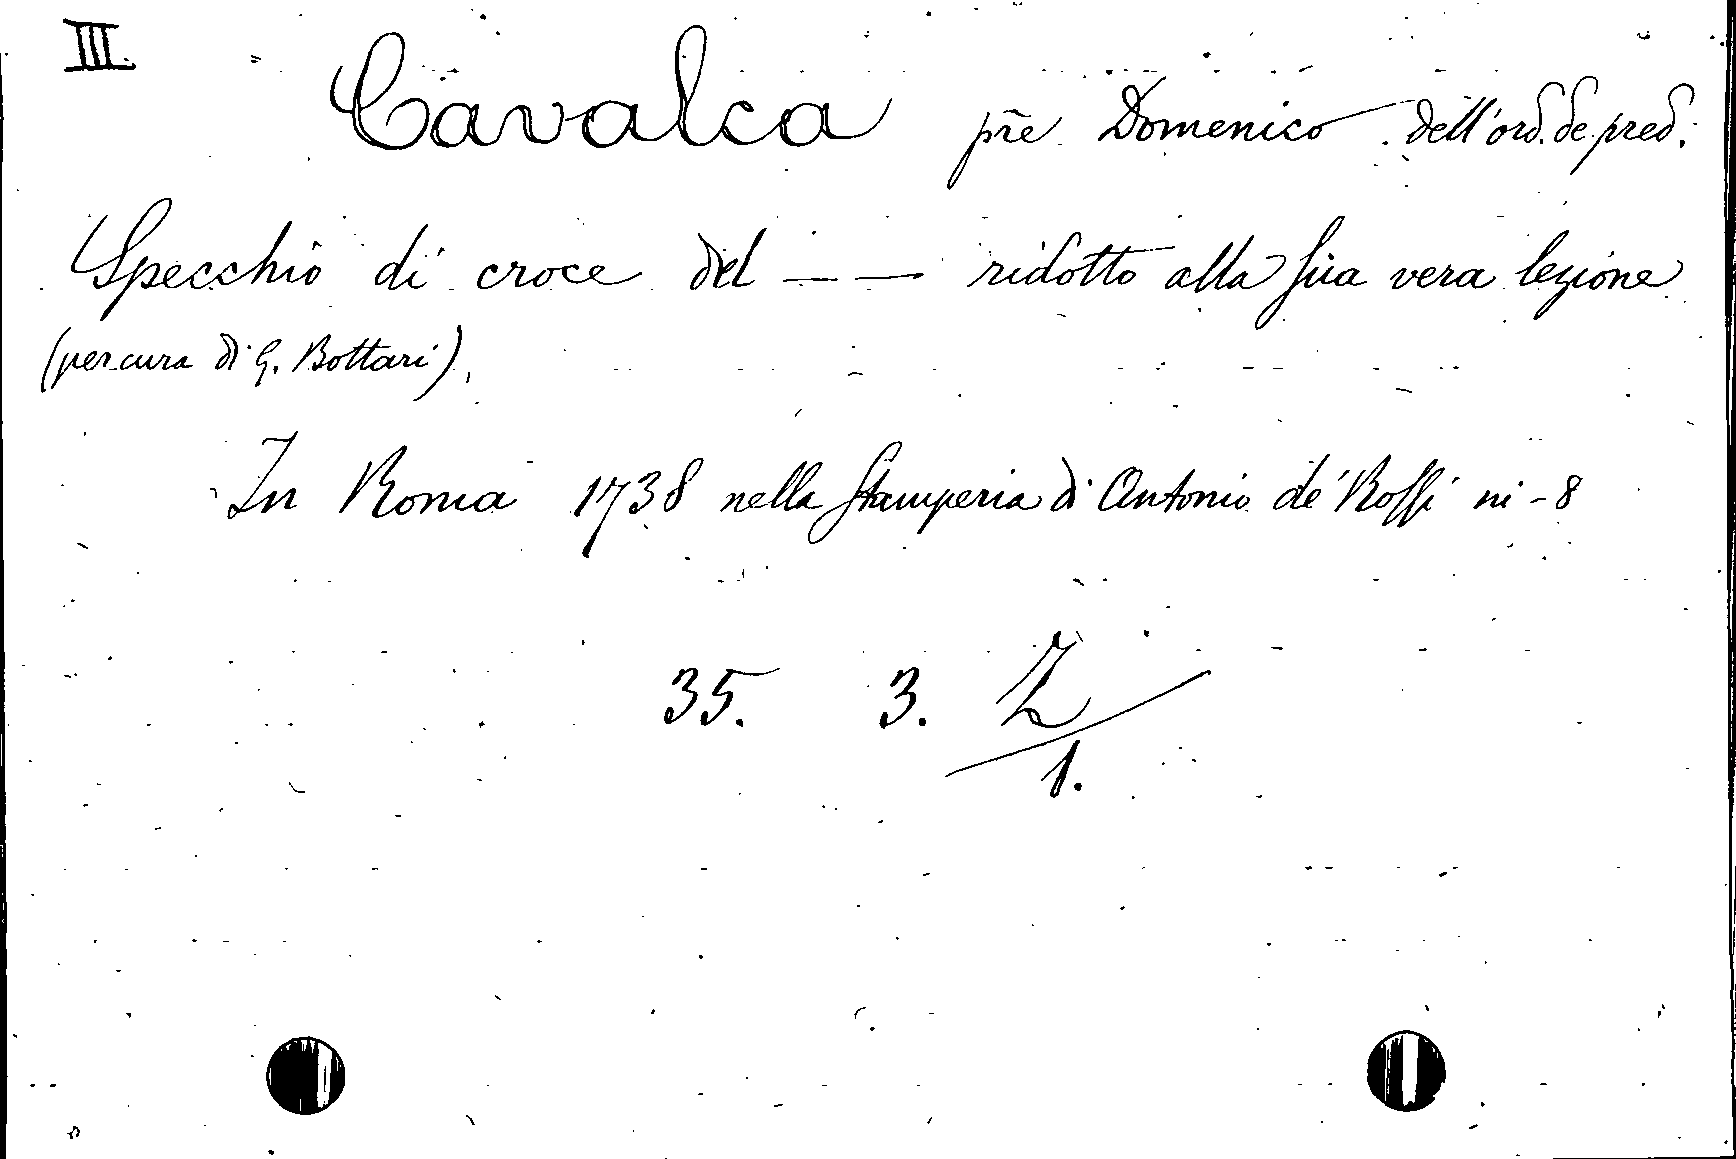 III.
Cavalca pr̃e Domenico dell'ord. de pred.
Specchio di croce del — — ridotto alla ſua vera lezione
(per cura di G. Bottari),
In Roma 1738 nella ſtamperia di Antonio de' Roſſi in-8
35. 3. Z
1.